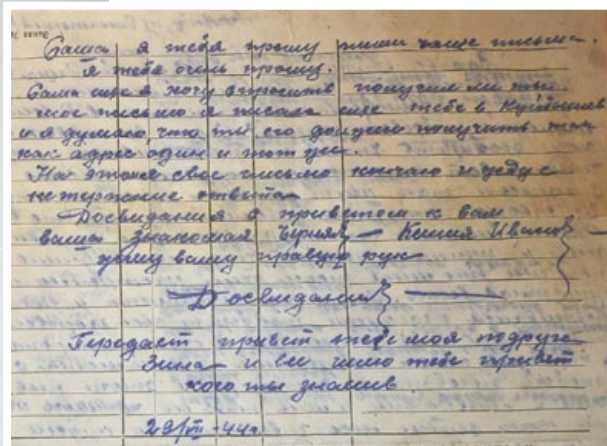 Саша я тебя прошу пиши чаще письма.
я тебя очень прошу.
Саша еще я хочу спросить получил ли ты
мое письмо я писала еще тебе в Куйбышев
и я думаю, что ты его должен получить так
как адрес один и тот же.
На этом свое письмо кончаю и жду с
нетерпение ответа
Досвидания с приветом к вам
ваша знакомая Ксения Иван
жму вашу правую рук
Досвидания
Передает привет тебе моя подруга
Зина и все шлю тебе привет
кого ты знаешь
29/VII - 44г.